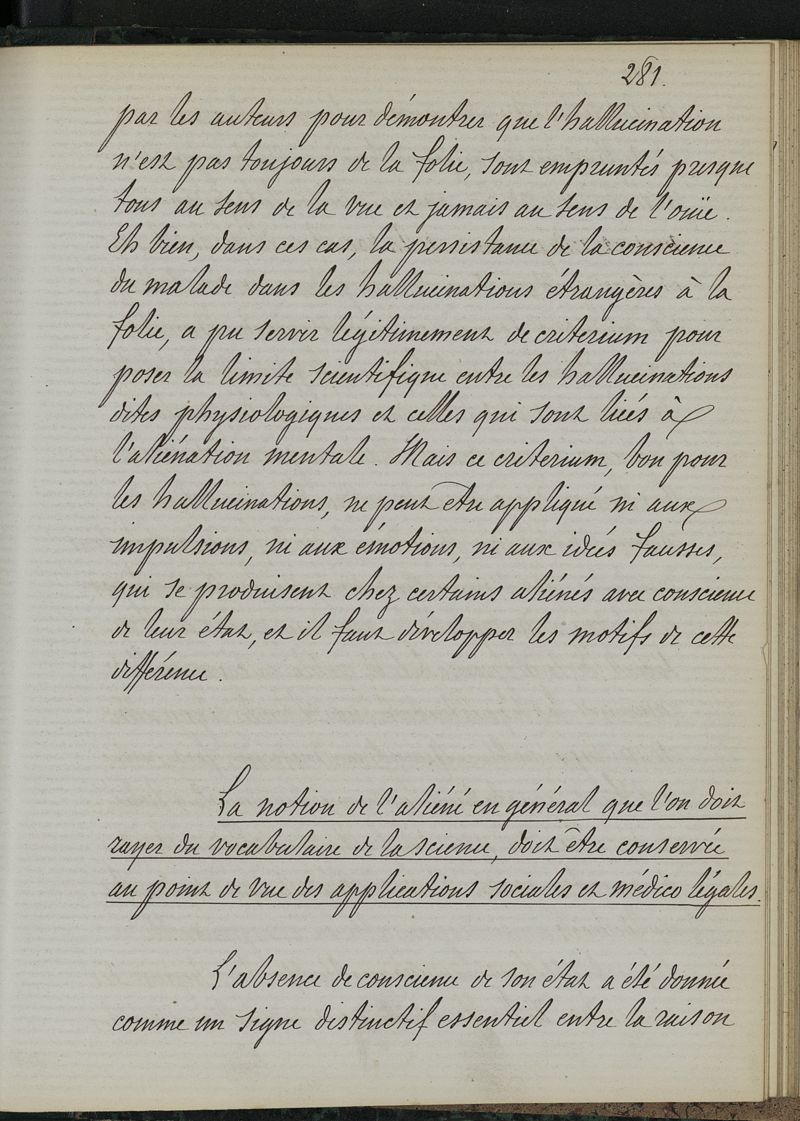 281.
par les auteurs pour démontrer que l'hallucination
n'est pas toujours de la folie, sont empruntés presque
tous au sens de la vue et jamais au sens de l'ouïe.
Eh bien, dans ces cas, la persistance de la conscience
du malade dans les hallucinations étrangères à la
folie, a pu servir légitimement de criterium pour
poser la limite scientifique entre les hallucinations
dites physiologiques et celles qui sont liées à
l'aliénation mentale. Mais ce criterium, bon pour
les hallucinations, ne peut être appliqué ni aux
impulsions, ni aux émotions, ni aux idées fausses,
qui se produisent chez certains aliénés avec conscience
de leur état, et il faut développer les motifs de cette
différence.
La notion de l'aliéné en général que l'on doit
rayer du vocabulaire de la science, doit être conservée
au point de vue des applications sociales et médico légales.
L'absence de conscience de son état a été donnée
comme un signe distinctif essentiel entre la raison